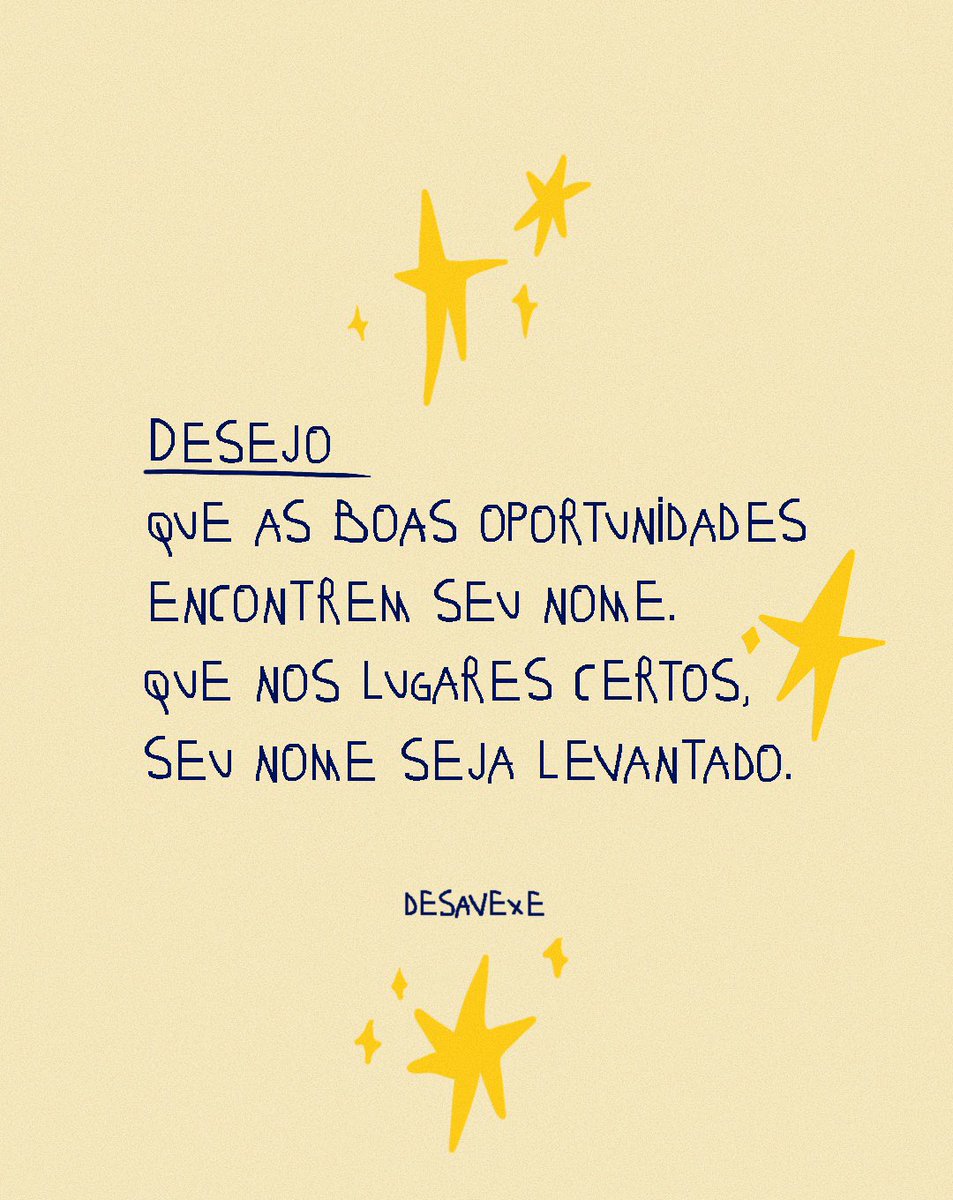 DESEJO
QUE AS BOAS OPORTUNIDADES
ENCONTREM SEU NOME.
QUE NOS LUGARES CERTOS,
SEU NOME SEJA LEVANTADO.
DESAVEXE